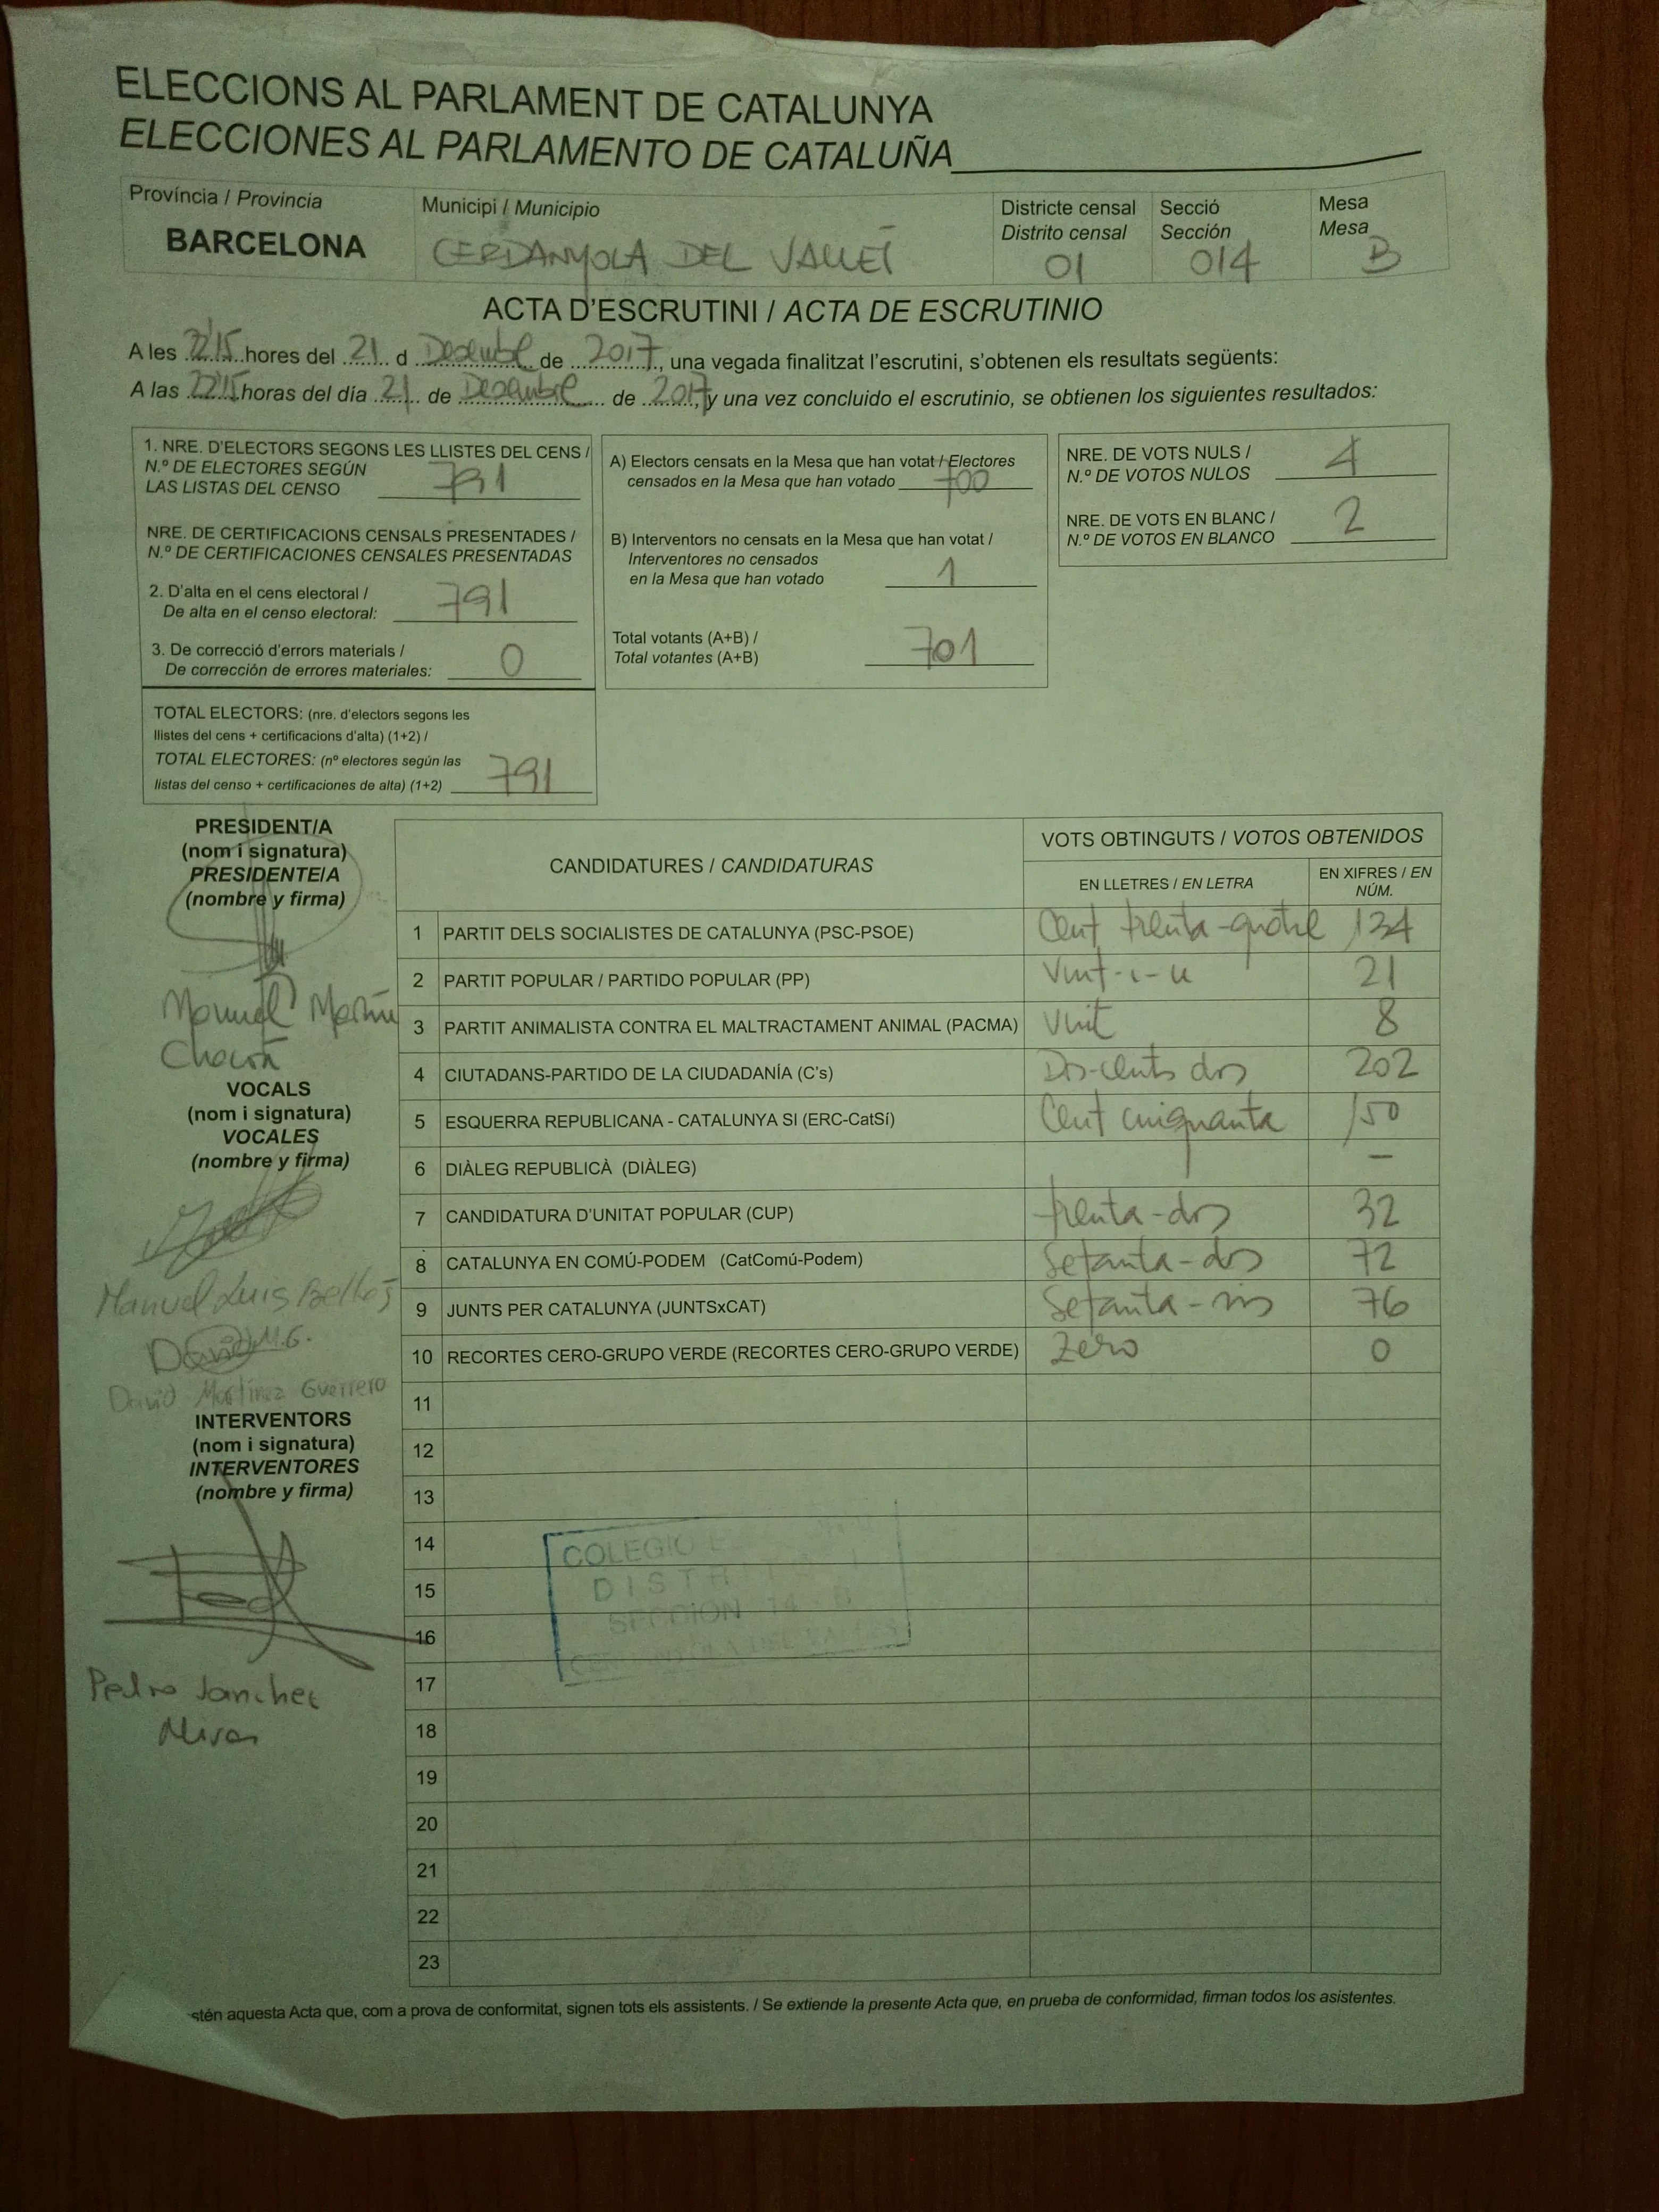 ELECCIONS AL PARLAMENT DE CATALUNYA
ELECCIONES AL PARLAMENTO DE CATALUÑA
Província / Provincia
BARCELONA
Municipi / Municipio
CERDANYOLA DEL VALLÈS
Districte censal
Distrito censal
01
Secció
Sección
014
Mesa
Mesa
B
ACTA D'ESCRUTINI / ACTA DE ESCRUTINIO
A les 22'15 hores del 21 d Desembre de 2017, una vegada finalitzat l'escrutini, s'obtenen els resultats següents:
A las 22'15 horas del día 21 de Desembre de 2017, y una vez concluido el escrutinio, se obtienen los siguientes resultados:
1. NRE. D'ELECTORS SEGONS LES LLISTES DEL CENS /
N.º DE ELECTORES SEGÚN
LAS LISTAS DEL CENSO 791
NRE. DE CERTIFICACIONS CENSALS PRESENTADES /
N.º DE CERTIFICACIONES CENSALES PRESENTADAS
2. D'alta en el cens electoral /
De alta en el censo electoral: 791
3. De correcció d'errors materials /
De corrección de errores materiales: 0
TOTAL ELECTORS: (nre. d'electors segons les
llistes del cens + certificacions d'alta) (1+2) /
TOTAL ELECTORES: (nº electores según las
listas del censo + certificaciones de alta) (1+2) 791
A) Electors censats en la Mesa que han votat / Electores
censados en la Mesa que han votado 700
B) Interventors no censats en la Mesa que han votat /
Interventores no censados
en la Mesa que han votado 1
Total votants (A+B) /
Total votantes (A+B) 701
NRE. DE VOTS NULS /
N.º DE VOTOS NULOS 4
NRE. DE VOTS EN BLANC /
N.º DE VOTOS EN BLANCO 2
PRESIDENT/A
(nom i signatura)
PRESIDENTE/A
(nombre y firma)
Manuel Martín
Chacón
VOCALS
(nom i signatura)
VOCALES
(nombre y firma)
Manuel Luis
David M.G.
David Martínez Guerrero
INTERVENTORS
(nom i signatura)
INTERVENTORES
(nombre y firma)
Pedro Sanchez
CANDIDATURES / CANDIDATURAS
VOTS OBTINGUTS / VOTOS OBTENIDOS
EN LLETRES / EN LETRA
EN XIFRES / EN
NÚM.
1 PARTIT DELS SOCIALISTES DE CATALUNYA (PSC-PSOE) Cent trenta-quatre 134
2 PARTIT POPULAR / PARTIDO POPULAR (PP) Vint-i-u 21
3 PARTIT ANIMALISTA CONTRA EL MALTRACTAMENT ANIMAL (PACMA) Vuit 8
4 CIUTADANS-PARTIDO DE LA CIUDADANÍA (C's) Dos-cents dos 202
5 ESQUERRA REPUBLICANA - CATALUNYA SI (ERC-CatSí) Cent cinquanta 150
6 DIÀLEG REPUBLICÀ (DIÀLEG) —
7 CANDIDATURA D'UNITAT POPULAR (CUP) trenta-dos 32
8 CATALUNYA EN COMÚ-PODEM (CatComú-Podem) Setanta-dos 72
9 JUNTS PER CATALUNYA (JUNTSxCAT) Setanta-sis 76
10 RECORTES CERO-GRUPO VERDE (RECORTES CERO-GRUPO VERDE) Zero 0
11
12
13
14
15
16
17
18
19
20
21
22
23
COLEGIO
DISTRITO 1
SECCION 14 - B
CERDANYOLA DEL VALLES
stén aquesta Acta que, com a prova de conformitat, signen tots els assistents. / Se extiende la presente Acta que, en prueba de conformidad, firman todos los asistentes.